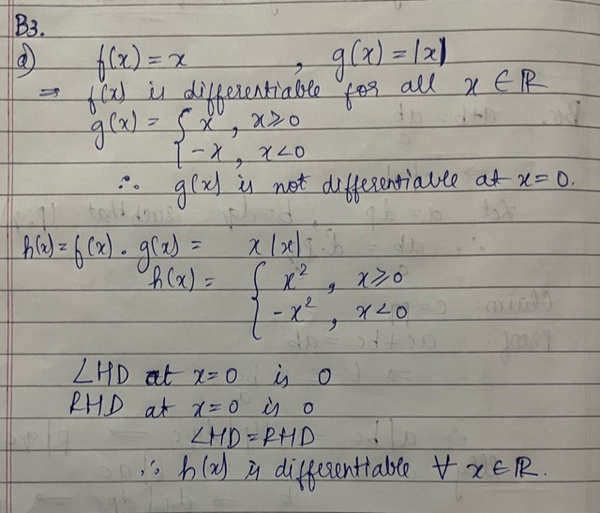 B3.
a) f(x) = x , g(x) = |x|
⇒ f(x) is differentiable for all x ∈ ℝ
g(x) = { x , x ≥ 0
-x , x < 0
∴ g(x) is not differentiable at x = 0.
h(x) = f(x) . g(x) = x |x|
h(x) = { x² , x ≥ 0
-x² , x < 0
LHD at x = 0 is 0
RHD at x = 0 is 0
LHD = RHD
∴ h(x) is differentiable ∀ x ∈ ℝ.